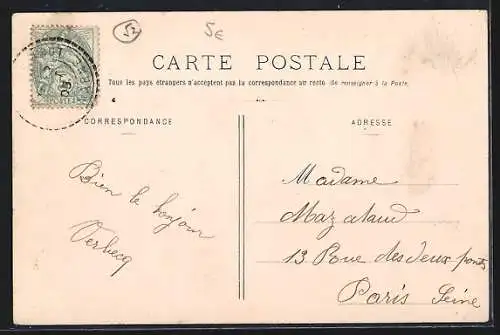 52
5€
CARTE POSTALE
Tous les pays étrangers n'acceptent pas la correspondance au recto (Se renseigner à la Poste)
CORRESPONDANCE
ADRESSE
Bien le bonjour
Verbecq
Madame
Mazataud
13 Rue des deux ponts
Paris Seine